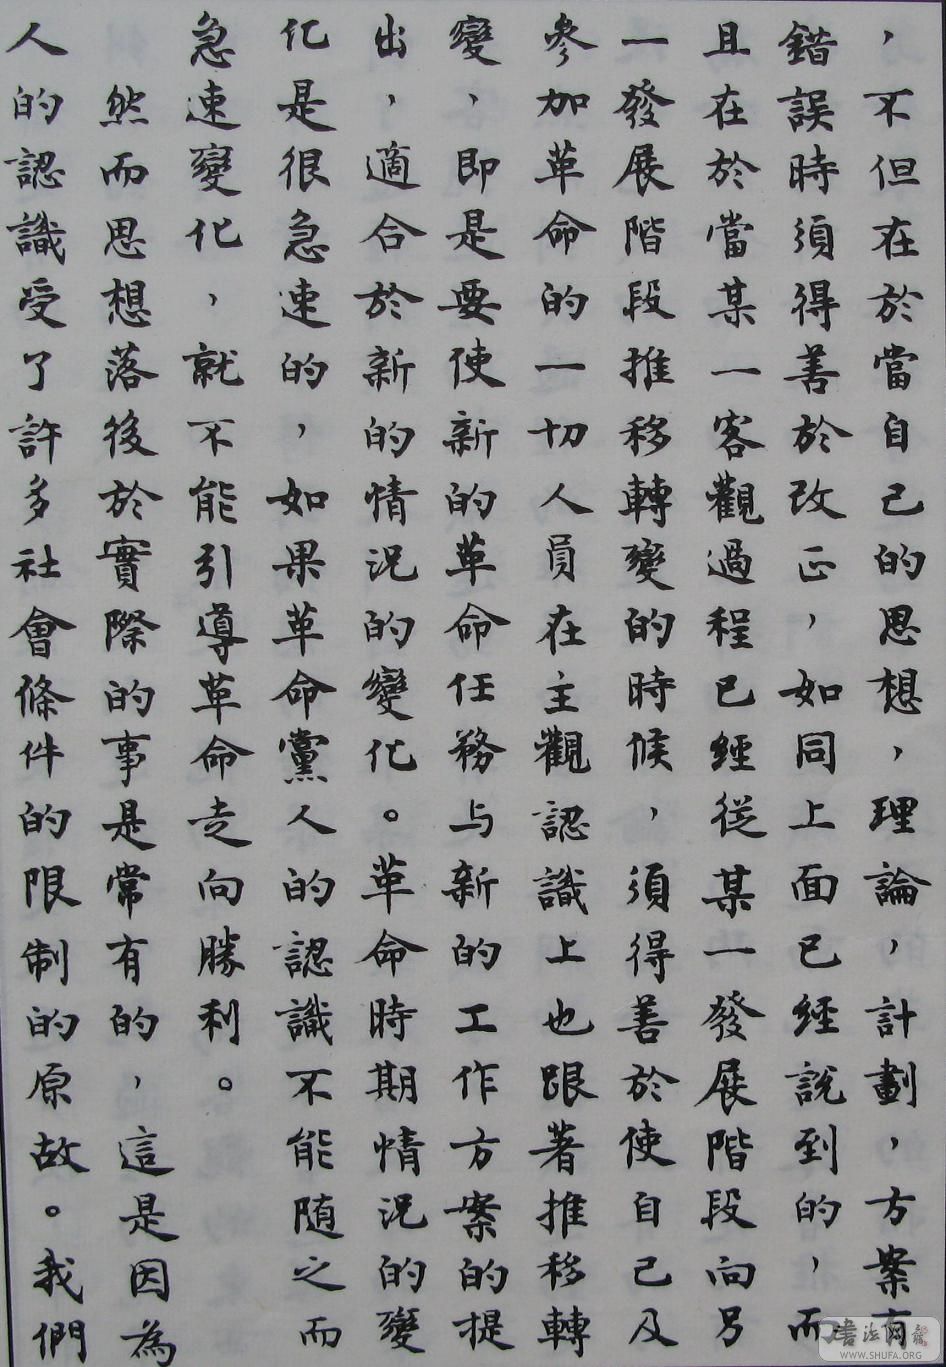 ，不但在於當自己的思想，理論，計劃，方案有
錯誤時須得善於改正，如同上面已經說到的，而
且在於當某一客觀過程已經從某一發展階段向另
一發展階段推移轉變的時候，須得善於使自己及
參加革命的一切人員在主觀認識上也跟著推移轉
變，即是要使新的革命任務与新的工作方案的提
出，適合於新的情況的變化。革命時期情況的變
化是很急速的，如果革命黨人的認識不能随之而
急速變化，就不能引導革命走向勝利。
然而思想落後於實際的事是常有的，這是因為
人的認識受了許多社會條件的限制的原故。我們
書法网
WWW.SHUFA.ORG